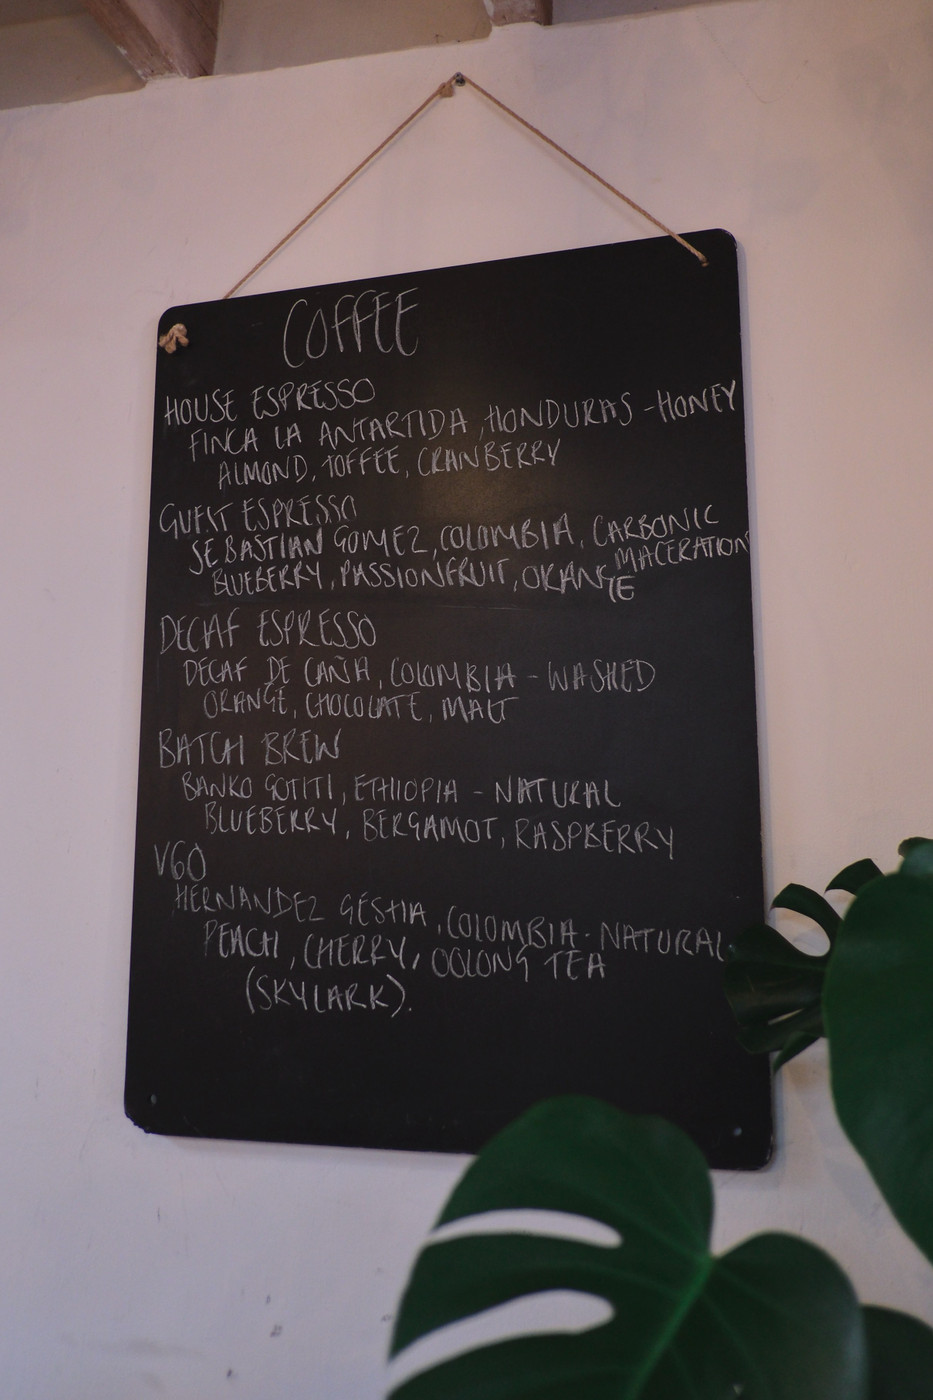 COFFEE
HOUSE ESPRESSO
FINCA LA ANTARTIDA, HONDURAS - HONEY
ALMOND, TOFFEE, CRANBERRY
GUEST ESPRESSO
SEBASTIAN GOMEZ, COLOMBIA, CARBONIC
MACERATION
BLUEBERRY, PASSIONFRUIT, ORANGE
DECAF ESPRESSO
DECAF DE CAÑA, COLOMBIA - WASHED
ORANGE, CHOCOLATE, MALT
BATCH BREW
BANKO GOTITI, ETHIOPIA - NATURAL
BLUEBERRY, BERGAMOT, RASPBERRY
V60
HERNANDEZ GESHA, COLOMBIA - NATURAL
PEACH, CHERRY, OOLONG TEA
(SKYLARK).